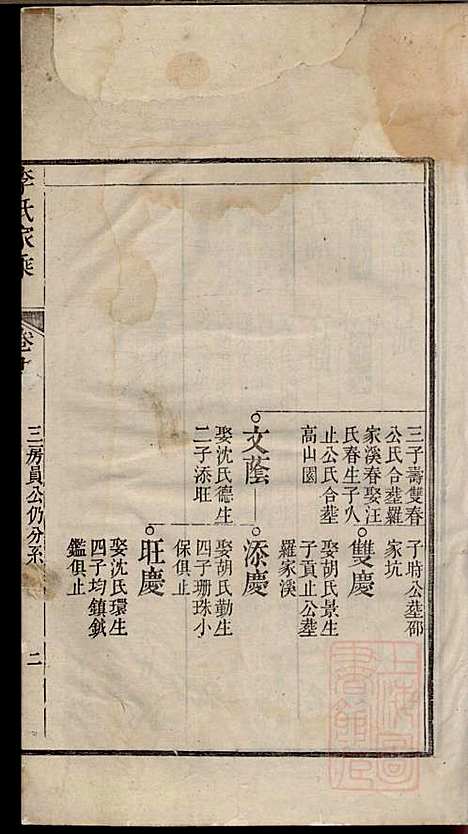 三子壽雙春
公氏合塟羅
家溪春娶汪
氏春生子久
止公氏合塟
高山園
文蔭
娶沈氏德生
二子添旺
子時公塟邵
家坑
雙慶
娶胡氏景生
子貢止公塟
羅家溪
添慶
娶胡氏勤生
四子珊珠小
保俱止
旺慶
娶沈氏環生
四子均鎮鉞
鑑俱止
李氏家乘
卷十
三房員公仍分系
二